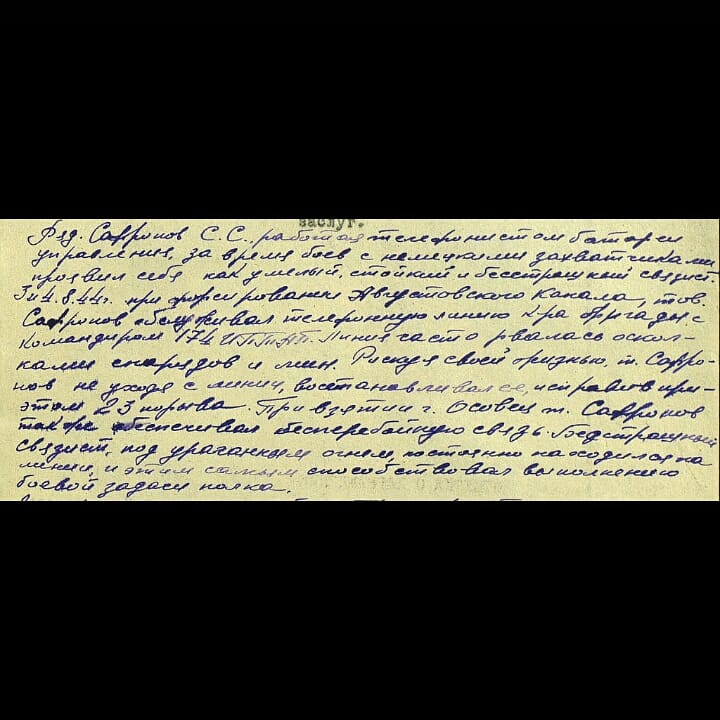 заслуг.
Ряд. Сафронов С.С., работая телефонистом батареи
управления, за время боев с немецкими захватчиками
проявил себя как умелый, стойкий и бесстрашный связист.
3 и 4.8.44г. при форсировании Августовского Канала, тов.
Сафронов обслуживал телефонную линию к-ра бригады с
командиром 174 ИПТАП. Линия часто рвалась оскол-
ками снарядов и мин. Рискуя своей жизнью, т. Сафро-
нов не уходя с линии, востанавливал се, исправив при-
этом 23 порыва. При взятии г. Осовец т. Сафронов
также обеспечивал бесперебойную связь. Бесстрашный
связист, под ураганным огнем, постоянно находился на
линии, и этим самым способствовал выполнению
боевой задачи полка.